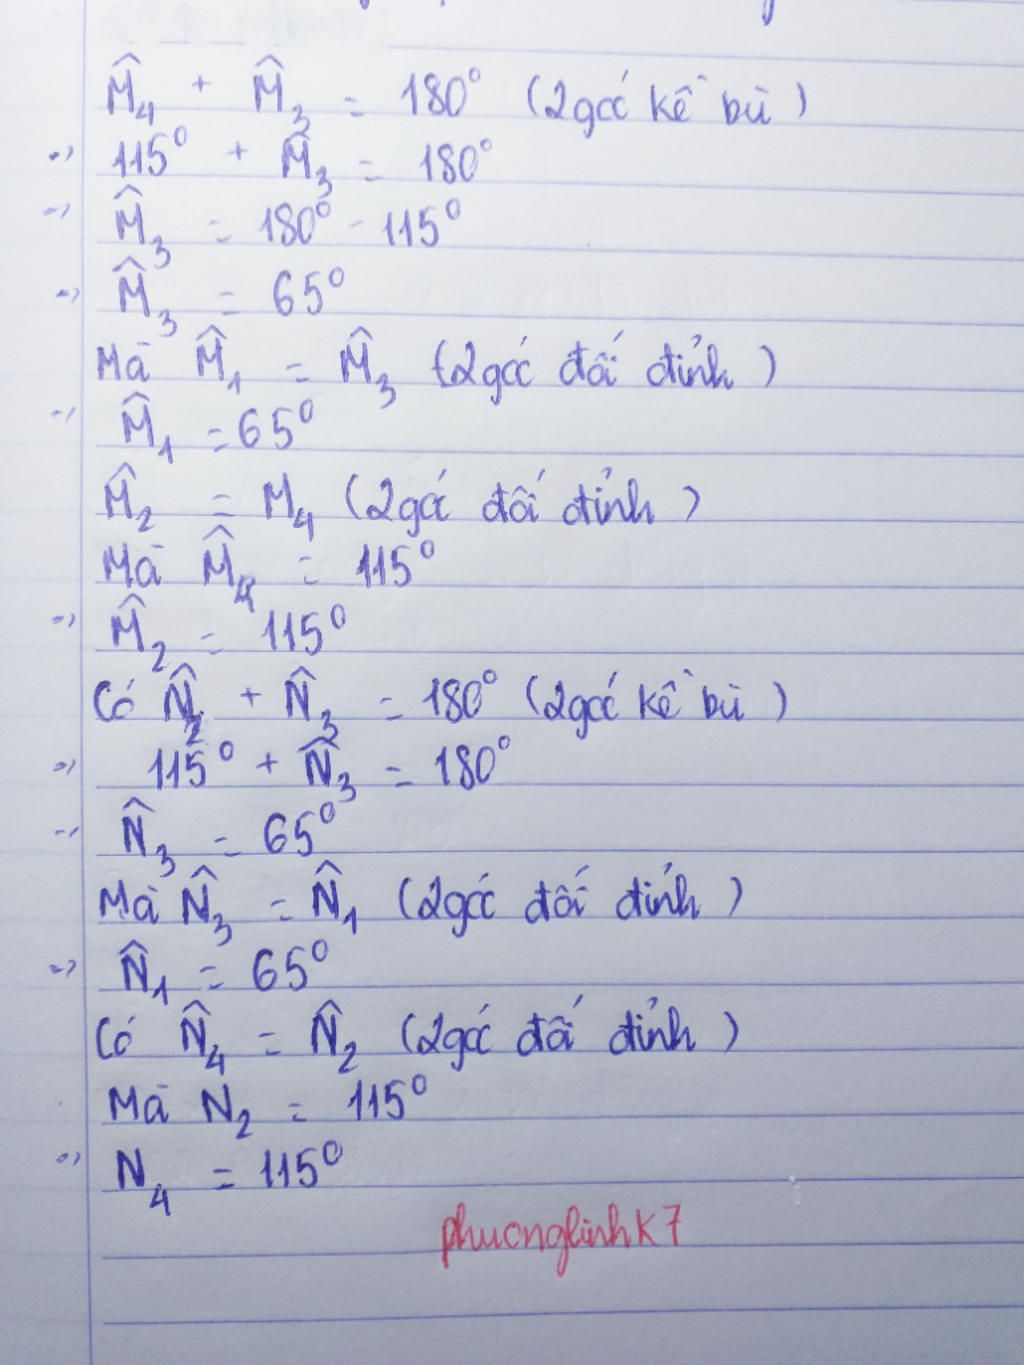 M̂₄ + M̂₃ = 180° (2 góc kề bù)
=> 115° + M̂₃ = 180°
=> M̂₃ = 180° - 115°
=> M̂₃ = 65°
Mà M̂₁ = M̂₃ (2 góc đối đỉnh)
=> M̂₁ = 65°
M̂₂ = M₄ (2 góc đối đỉnh)
Mà M̂₄ = 115°
=> M̂₂ = 115°
Có N̂₂ + N̂₃ = 180° (2 góc kề bù)
=> 115° + N̂₃ = 180°
=> N̂₃ = 65°
Mà N̂₃ = N̂₁ (2 góc đối đỉnh)
=> N̂₁ = 65°
Có N̂₄ = N̂₂ (2 góc đối đỉnh)
Mà N₂ = 115°
=> N₄ = 115°
phuonglinhK7